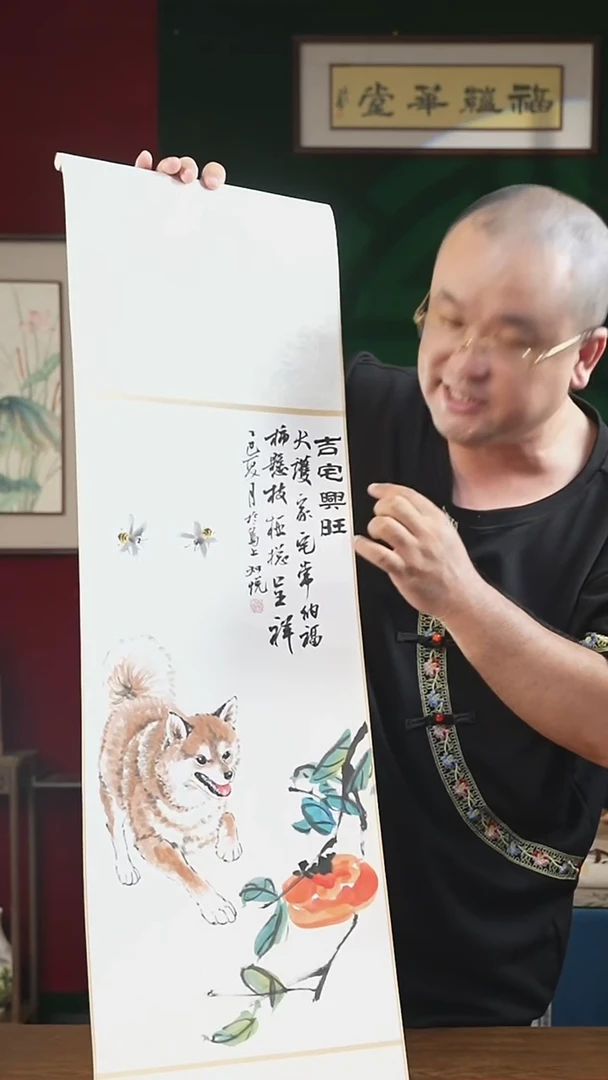 福蘊華堂
吉宅興旺
犬護家宅常納福
柿懸枝椏摠呈祥
乙巳夏月於